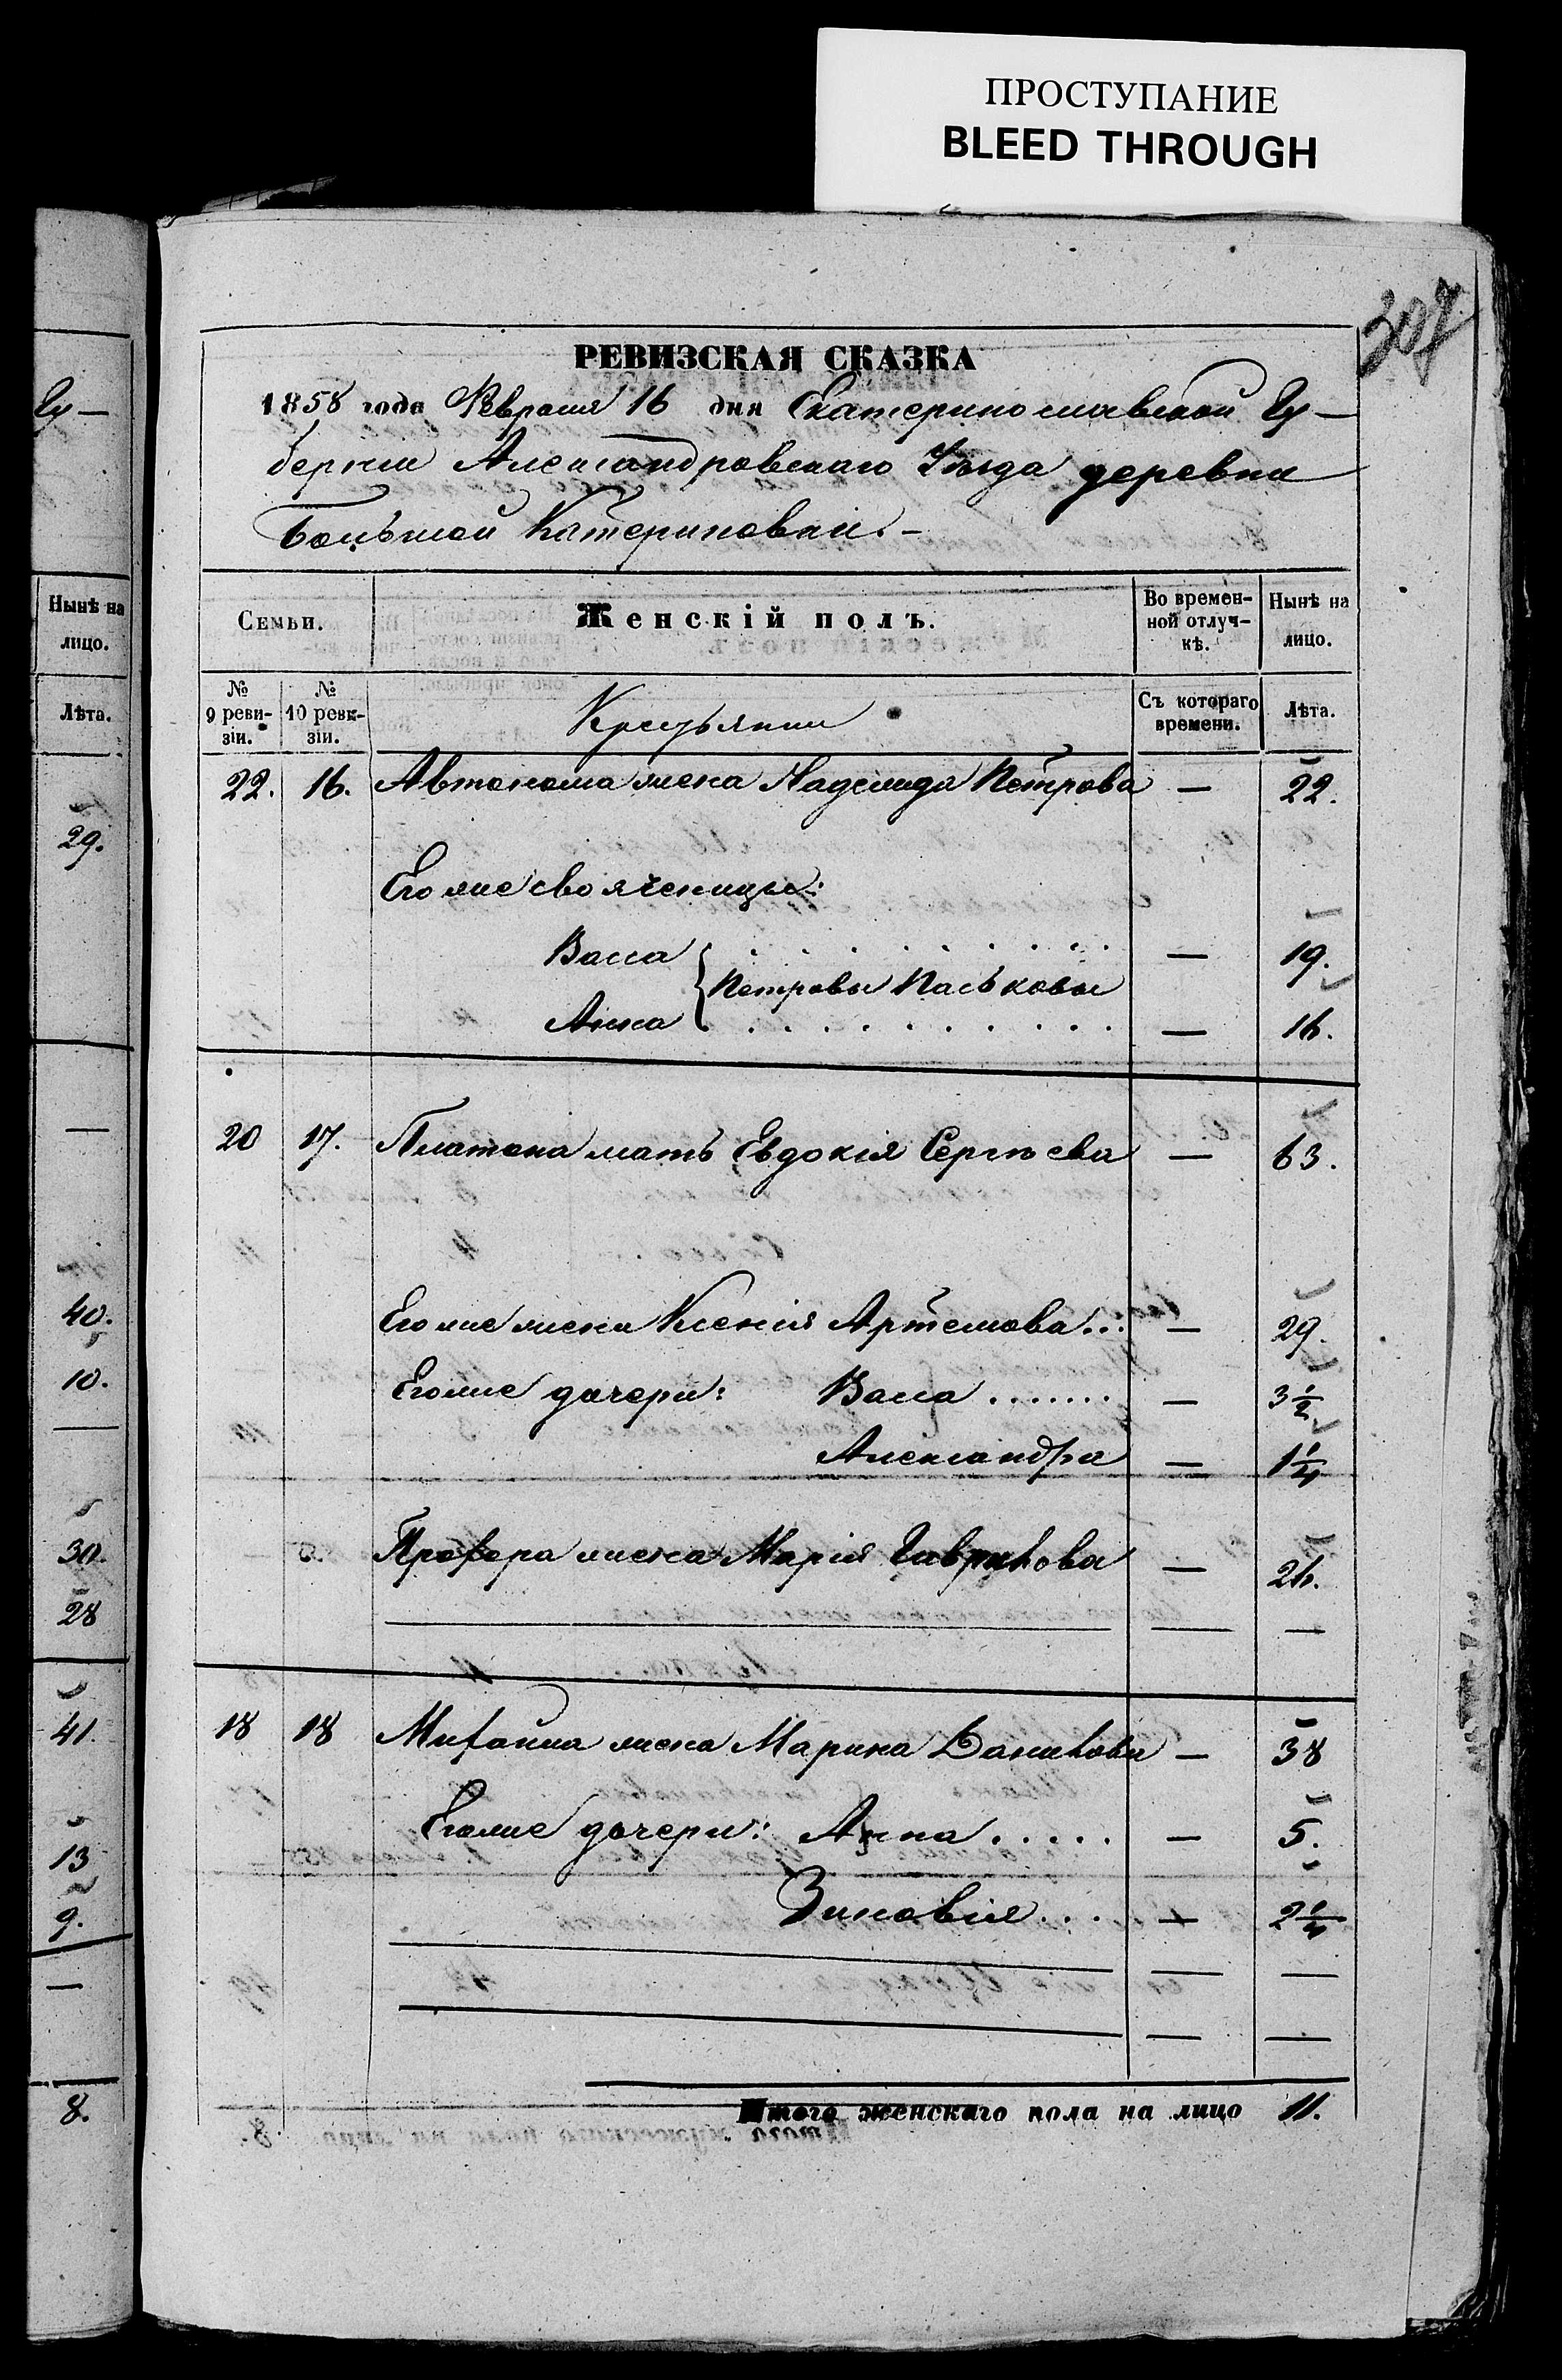 ПРОСТУПАНИЕ
BLEED THROUGH
307
РЕВИЗСКАЯ СКАЗКА
1858 года Февраля 16 дня Екатеринославской Гу–
берніи Александровскаго Уѣзда деревни
Большой Катериновки.–
Семьи.
Женскій полъ.
Во времен-
ной отлуч-
кѣ.
Нынѣ на
лицо.
№
9 реви-
зіи.
№
10 реви-
зіи.
Крестьянки
Съ котораго
времени.
Лѣта.
22. 16. Автонома жена Надежда Петрова — 22.
Его же свояченицы:
Васса . . . . . . . . . — 19.
Петровы Паськовы
Анна . . . . . . . . . . — 16.
20 17. Платона мать Евдокія Сергѣева — 63.
Его же жена Ксенія Артемова... — 29.
Его же дочери: Васса ....... — 3 1/2
Александра — 1 1/4
Прохора жена Марія Гаврилова — 26.
— —
18 18 Михайла жена Марина Данилова — 38
Его же дочери: Анна ..... — 5.
Зиновія ... — 2 1/4
— —
— —
Итого женскаго пола на лицо 11.
Гу—
Нынѣ на
лицо.
Лѣта.
29.
—
40.
10.
—
30.
28
41.
13
9.
—
8.